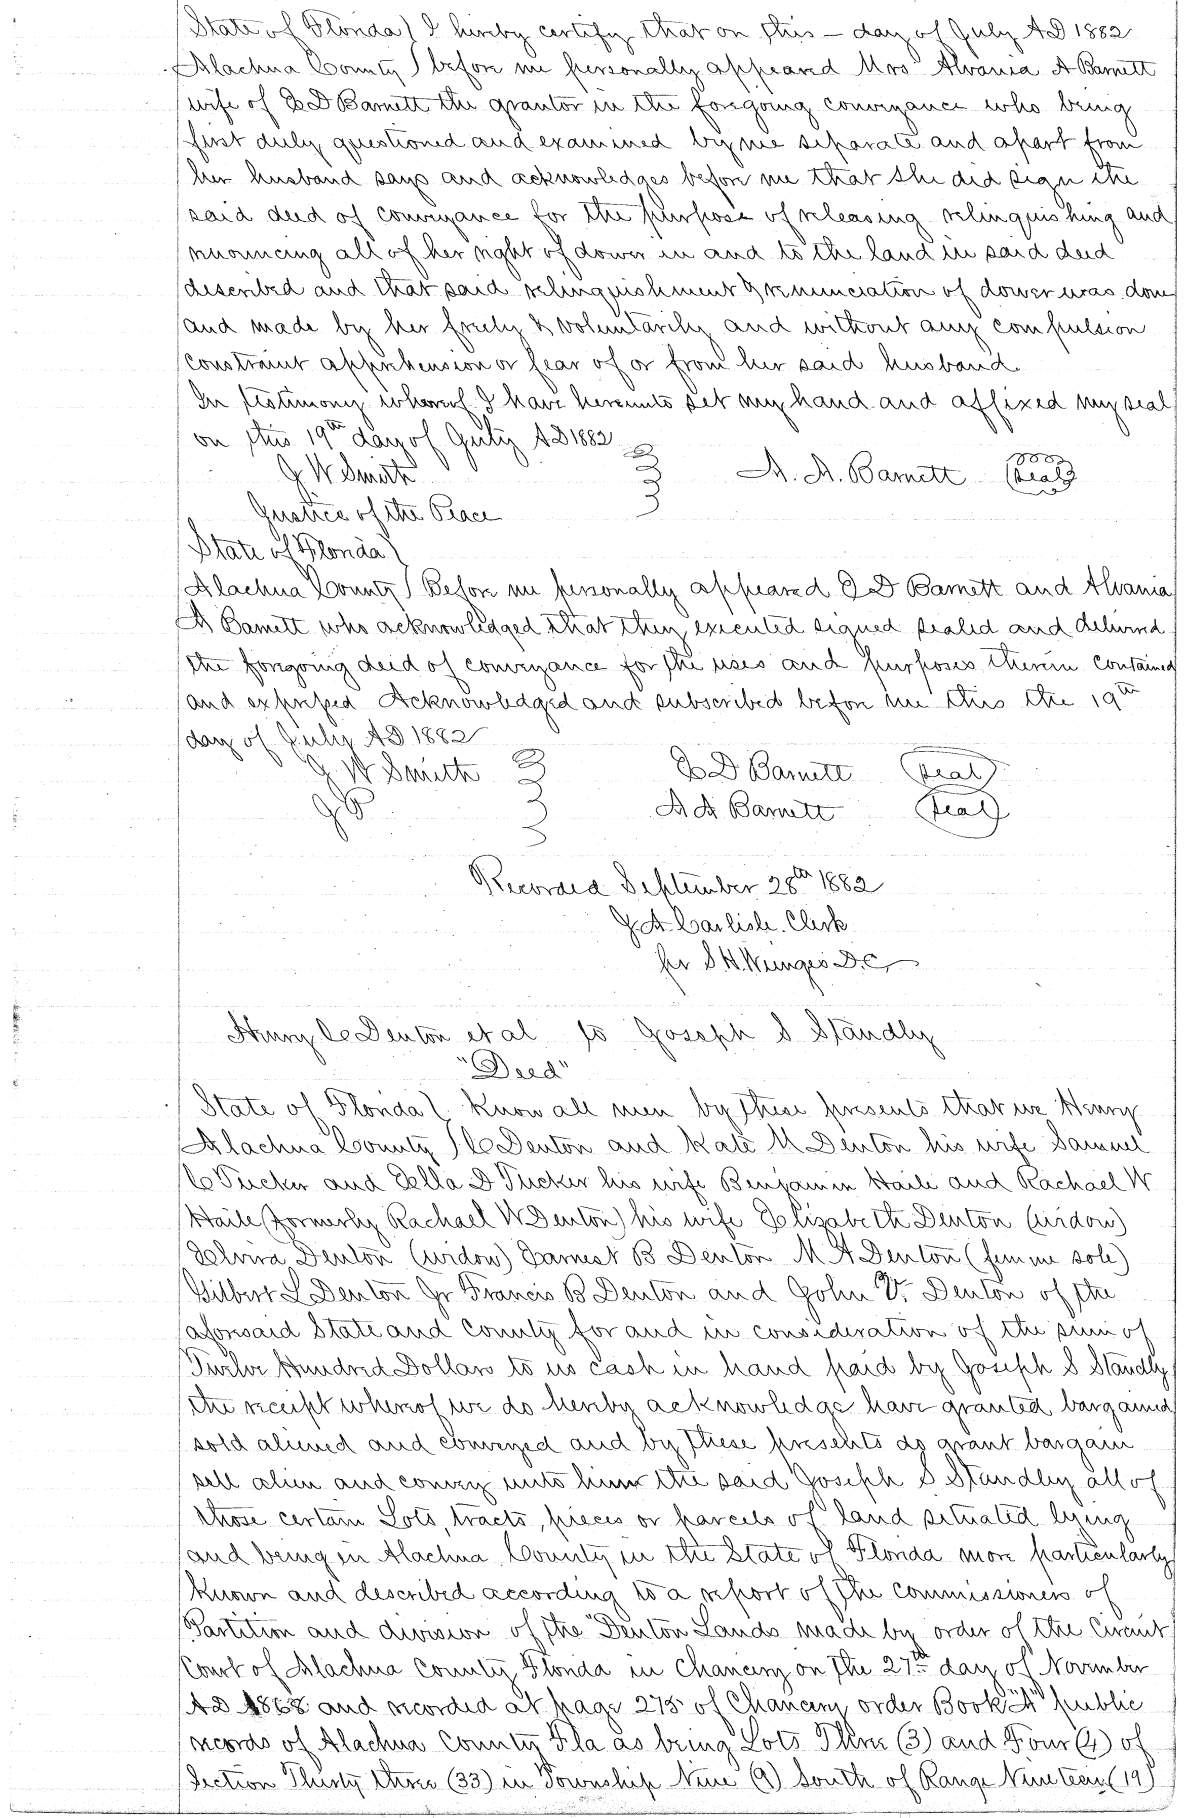 State of Florida } I hereby certify that on this – day of July AD 1882
Alachua County } before me personally appeared Mrs Alvania A Barnett
wife of E D Barnett the grantor in the foregoing conveyance who being
first duly questioned and examined by me separate and apart from
her husband says and acknowledges before me that she did sign the
said deed of conveyance for the purpose of releasing relinquishing and
renouncing all of her right of dower in and to the land in said deed
described and that said relinquishment & renunciation of dower was done
and made by her freely & voluntarily and without any compulsion
constraint apprehension or fear of or from her said husband.
In testimony whereof I have hereunto set my hand and affixed my seal
on this 19th day of July AD 1882
J W Smith A. A. Barnett (seal)
Justice of the Peace
State of Florida }
Alachua County } Before me personally appeared E D Barnett and Alvania
A Barnett who acknowledged that they executed signed sealed and delivered
the foregoing deed of conveyance for the uses and purposes therein contained
and expressed Acknowledged and subscribed before me this the 19th
day of July AD 1882
J W Smith E D Barnett (seal)
J P A A Barnett (seal)
Recorded September 28th 1882
J. A. Carlisle. Clerk
per S. H. Wienges D.C.
Henry C Denton et al to Joseph S Standly
"Deed"
State of Florida } Know all men by these presents that we Henry
Alachua County } C Denton and Kate M Denton his wife Samuel
C Tucker and Ella D Tucker his wife Benjamin Haile and Rachael W
Haile (formerly Rachael W Denton) his wife Elizabeth Denton (widow)
Elvira Denton (widow) Earnest B Denton M A Denton (femme sole)
Gilbert L Denton Jr Francis B Denton and John V. Denton of the
aforesaid State and County for and in consideration of the sum of
Twelve Hundred Dollars to us cash in hand paid by Joseph S Standly
the receipt whereof we do hereby acknowledge have granted bargained
sold aliened and conveyed and by these presents do grant bargain
sell alien and convey unto him the said Joseph S Standley all of
those certain Lots, tracts, pieces or parcels of land situated lying
and being in Alachua County in the State of Florida more particularly
known and described according to a report of the commissioners of
Partition and division of the "Denton Lands made by order of the Circuit
Court of Alachua County Florida in Chancery on the 27th day of November
AD 1868 and recorded at page 275 of Chancery order Book "A" public
records of Alachua County Fla as being Lots Three (3) and Four (4) of
Section Thirty three (33) in Township Nine (9) South of Range Nineteen (19)